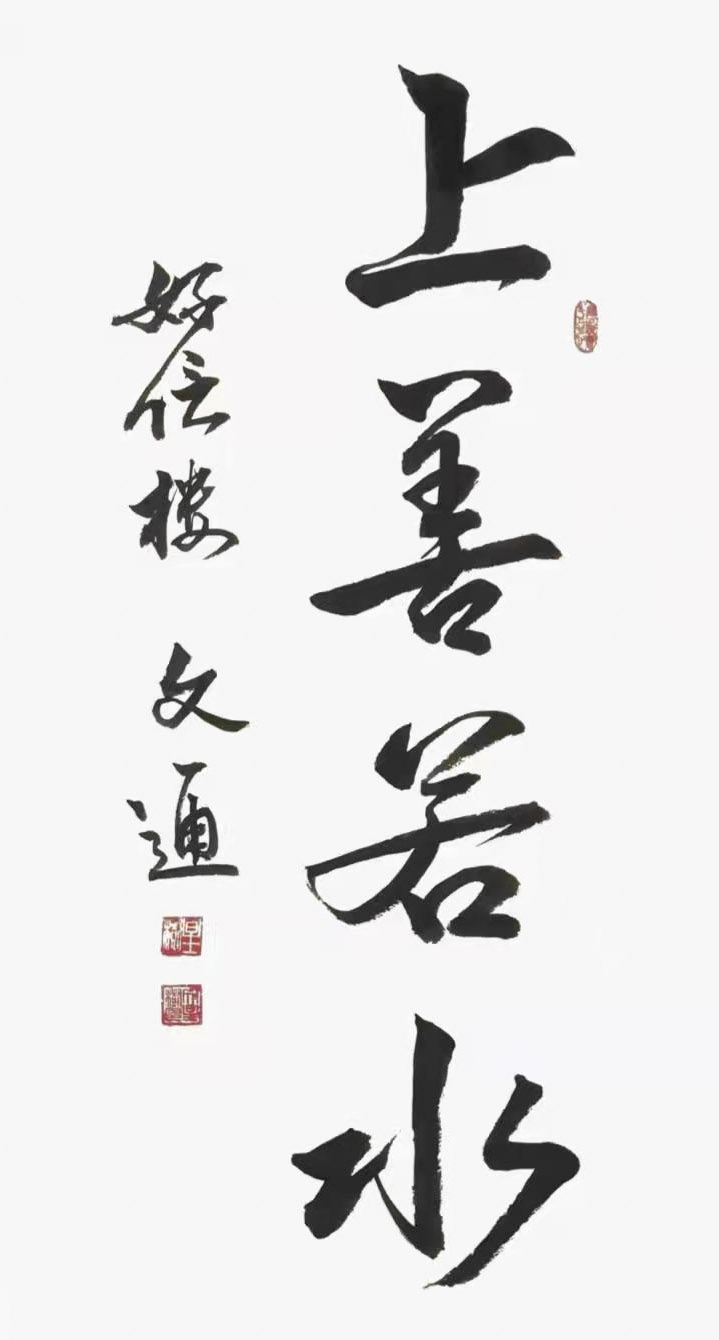 上善若水
好信楼 文通